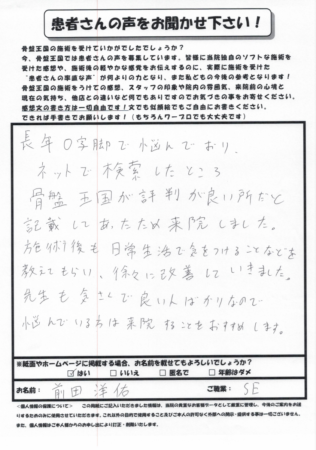 患者さんの声をお聞かせ下さい!
骨盤王国の施術を受けていかがでしたでしょうか?
今、骨盤王国では患者さんの声を募集しています。皆様に当院独自のソフトな施術を
受けた感想や、施術後の軽やかな感覚をお伝えするのに、実際に施術を受けた
"患者さんの率直な声"が何よりの力となり、また私どもの今後の参考となります!
骨盤王国の施術をうけての感想、スタッフの印象や院内の雰囲気、来院前の心境と
現在の気持ち、他店との違いなど何でもありですのでお気づきの事をお寄せください。
感想文の書き方は一切自由です!文でも似顔絵でもご自由にお書きください。
できれば手書きでお願いします!(もちろんワープロでも大丈夫です)
長年O字脚で悩んでおり、
ネットで検索したところ
骨盤王国が評判が良い所だと
記載してあったため来院しました。
施術後も日常生活で気をつけることなどを
教えてもらい、徐々に改善していきました。
先生も気さくで良い人ばかりなので
悩んでいる方は来院することをおすすめします。
※紙面やホームページに掲載する場合、お名前を載せてもよろしいでしょうか?
☑はい □いいえ □匿名で □年齢はダメ
お名前: 前田 洋佑 ご職業: SE